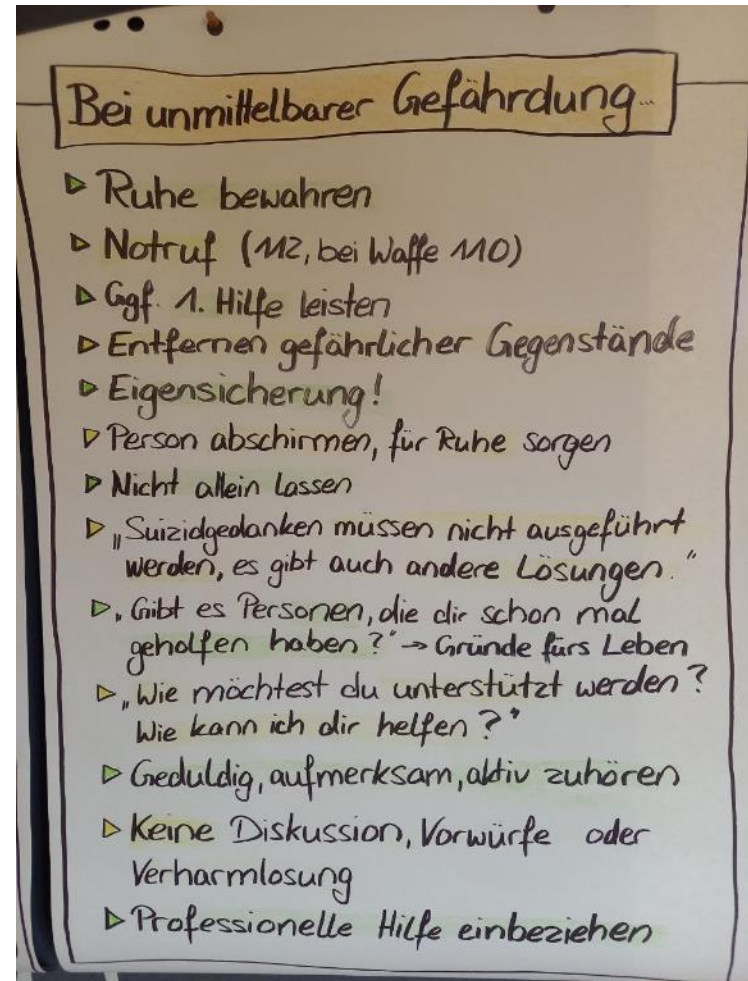 Bei unmittelbarer Gefährdung...
▷ Ruhe bewahren
▷ Notruf (112, bei Waffe 110)
▷ Ggf. 1. Hilfe leisten
▷ Entfernen gefährlicher Gegenstände
▷ Eigensicherung!
▷ Person abschirmen, für Ruhe sorgen
▷ Nicht allein lassen
▷ „Suizidgedanken müssen nicht ausgeführt
werden, es gibt auch andere Lösungen."
▷ „Gibt es Personen, die dir schon mal
geholfen haben?" → Gründe fürs Leben
▷ „Wie möchtest du unterstützt werden?
Wie kann ich dir helfen?"
▷ Geduldig, aufmerksam, aktiv zuhören
▷ Keine Diskussion, Vorwürfe oder
Verharmlosung
▷ Professionelle Hilfe einbeziehen